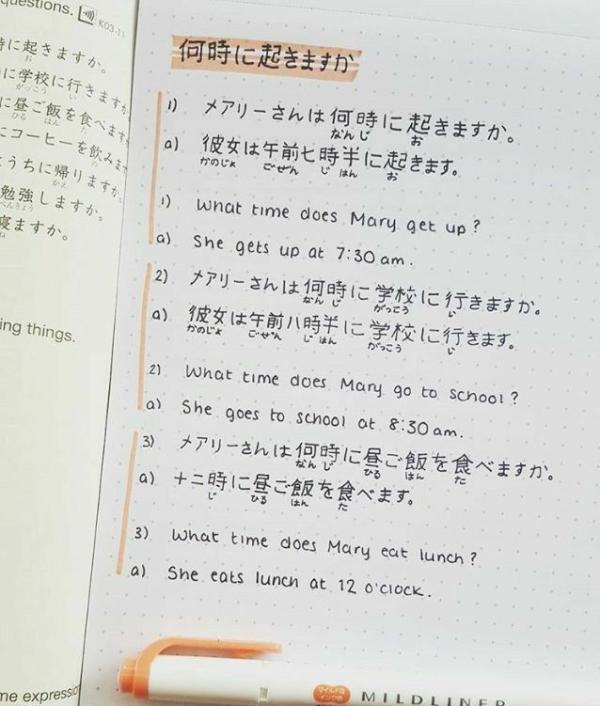 uestions.
K03-11
に起きますか。
お
に学校に行きますか
がっこう い
に昼ご飯を食べます
ひる はん た
にコーヒーを飲みます
の
うちに帰りますか。
かえ
勉強しますか。
べんきょう
寝ますか。
ね
ing things.
me expressio
何時に起きますか
1) メアリーさんは何時に起きますか。
なんじ お
a) 彼女は午前七時半に起きます。
かのじょ ごぜん じ はん お
1) What time does Mary get up?
a) She gets up at 7:30 am.
2) メアリーさんは何時に学校に行きますか。
なんじ がっこう い
a) 彼女は午前八時半に学校に行きます。
かのじょ ごぜん じ はん がっこう い
2) What time does Mary go to school?
a) She goes to school at 8:30 am.
3) メアリーさんは何時に昼ご飯を食べますか。
なんじ ひる はん た
a) 十二時に昼ご飯を食べます。
じ ひる はん た
3) What time does Mary eat lunch?
a) She eats lunch at 12 o'clock.
MILDLINER